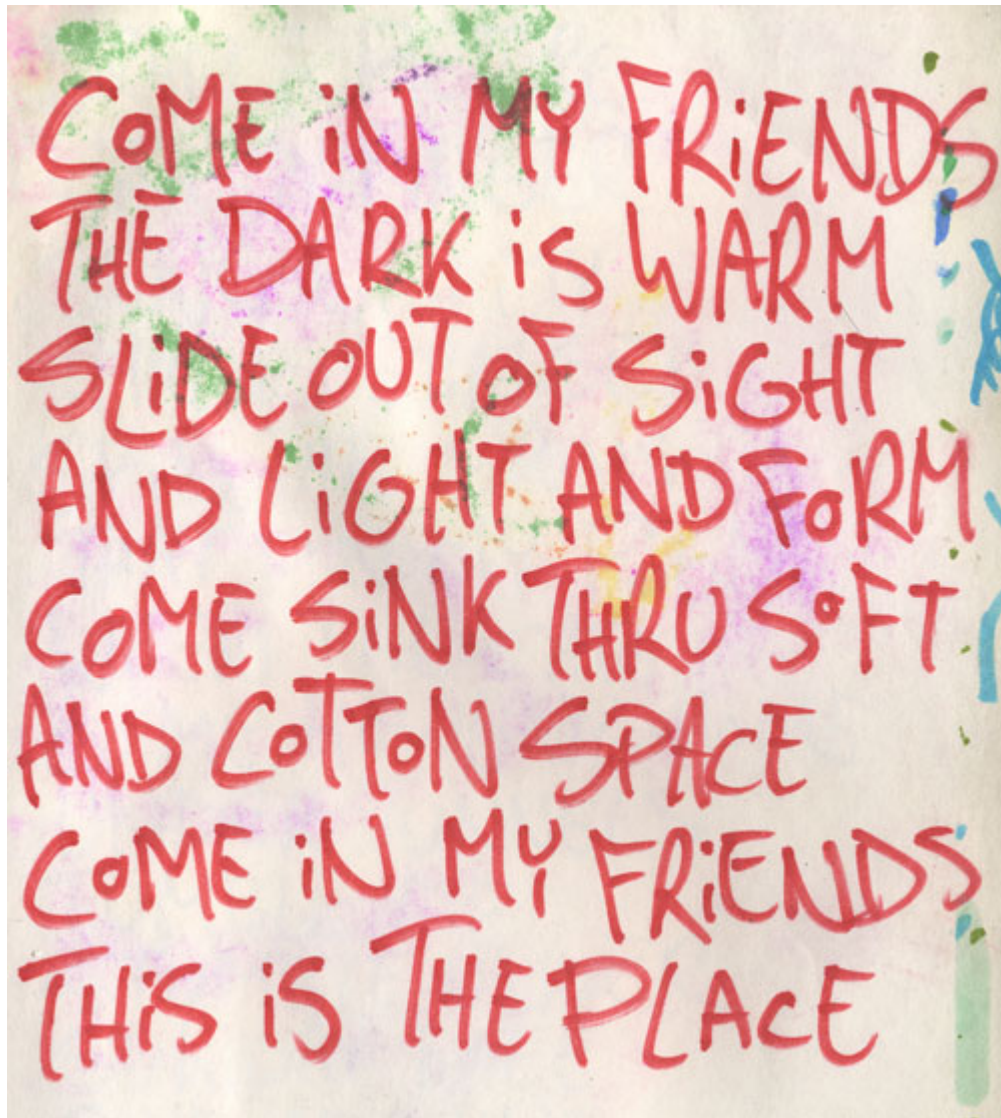 COME iN MY FRiENDS
THE DARK iS WARM
SLiDE OUT OF SiGHT
AND LiGHT AND FORM
COME SiNK THRU SOFT
AND COTTON SPACE
COME iN MY FRiENDS
THiS iS THE PLACE